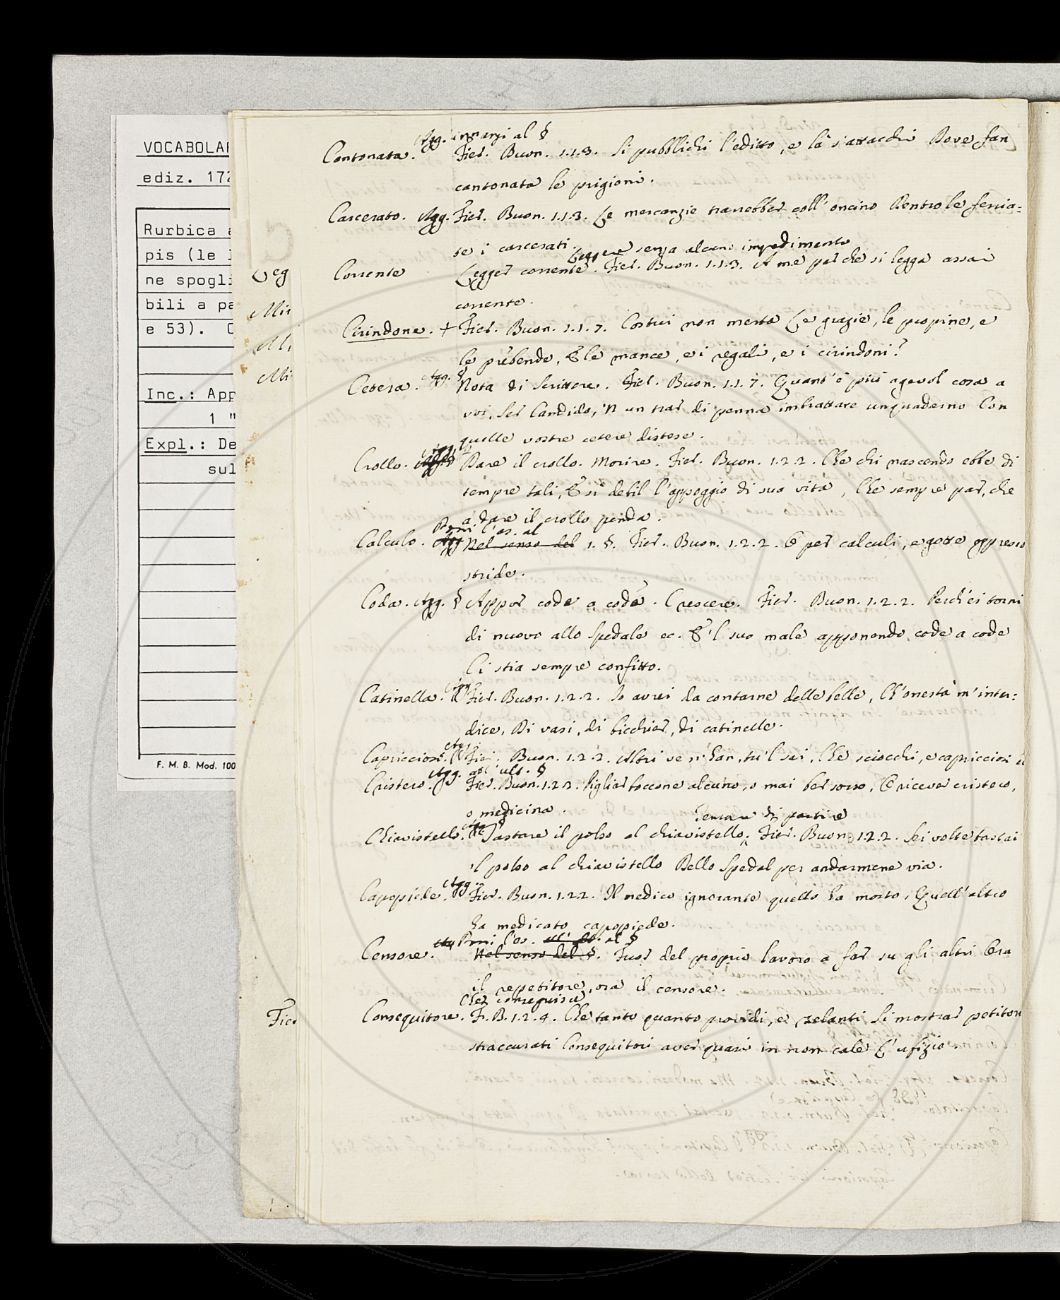 VOCABOLAR
ediz. 172
Rurbica a
pis (le l
ne spogli
bili a pa
e 53). C
Inc.: App
1 "
Expl.: De
sul
F. M. B. Mod. 100
Leg
Mi
Mi
Mi
Fier
Agg. innanzi al §
Cantonata. Fier. Buon. 1.1.3. Si pubblichi l'editto, e là s'attacchi Dove fan
cantonata le prigioni.
Carcerato. Agg. Fier. Buon. 1.1.3. Le mercanzie trarrebber coll'oncino Dentro le ferria=
te i carcerati.
Leggere senza alcuno impedimento
Corrente Legger corrente. Fier. Buon. 1.1.3. A me par che si legga assai
corrente.
Cirindone. + Fier. Buon. 1.1.7. Costui non merta Le grazie, le propine, e
le prebende, E le mance, e i regali, e i cirindoni?
Cetera. Agg. § Nota di Scrittore. Fier. Buon. 1.1.7. Quant'è più agevol cosa a
voi, Ser Candido, 'N un trar di penna imbrattare un quaderno Con
quelle vostre cetere distese.
Crollo. Agg. § Dare il crollo. Morire. Fier. Buon. 1.2.2. Che chi nascendo ebbe di
tempre tali, E sì debil l'appoggio di sua vita, Che sempre par, che
a dare il crollo penda.
Poni l'es. al
Calculo. Agg. Nel senso del 1. §. Fier. Buon. 1.2.2. E per calculi, e gotte oppresso
stride.
Coda. Agg. § Appor coda a coda. Crescere. Fier. Buon. 1.2.2. Perch'ei torni
di nuovo allo spedale ec. E 'l suo male apponendo coda a coda
Ci stia sempre confitto.
Catinella. Fier. Buon. 1.2.2. Io avrei da contarne delle belle, Ch'onestà m'inter=
dice, Di vasi, di bicchier, di catinelle.
Capricciosi. Fier. Buon. 1.2.2. Altri ve n'han, tu 'l sai, Che sciocchi, e capricciosi
Agg. all'ult. §
Cristero. Fier. Buon. 1.2.2. Pigliar boccone alcuno, o mai ber sorso, E ricever cristero,
o medicina.
Tentare di partire
Chiavistello. Tastare il polso al chiavistello. Fier. Buon. 1.2.2. Sei volte tastai
'l polso al chiavistello Dello Spedal per andarmene via.
Capopiede. Agg. Fier. Buon. 1.2.2. Il medico ignorante quello ha morto, Quell'altro
ha medicato capopiede.
Poni l'es. al §
Censore. Nel senso del §. Fuor del proprio lavoro a far su gli altri Ora
il repetitore, ora il censore.
Che conseguisce
Conseguitore. F. B. 1.2.4. Che tanto quanto providi, e zelanti Si mostrar petitori
straccurati Conseguitori aver quasi in non cale L'ufizio.